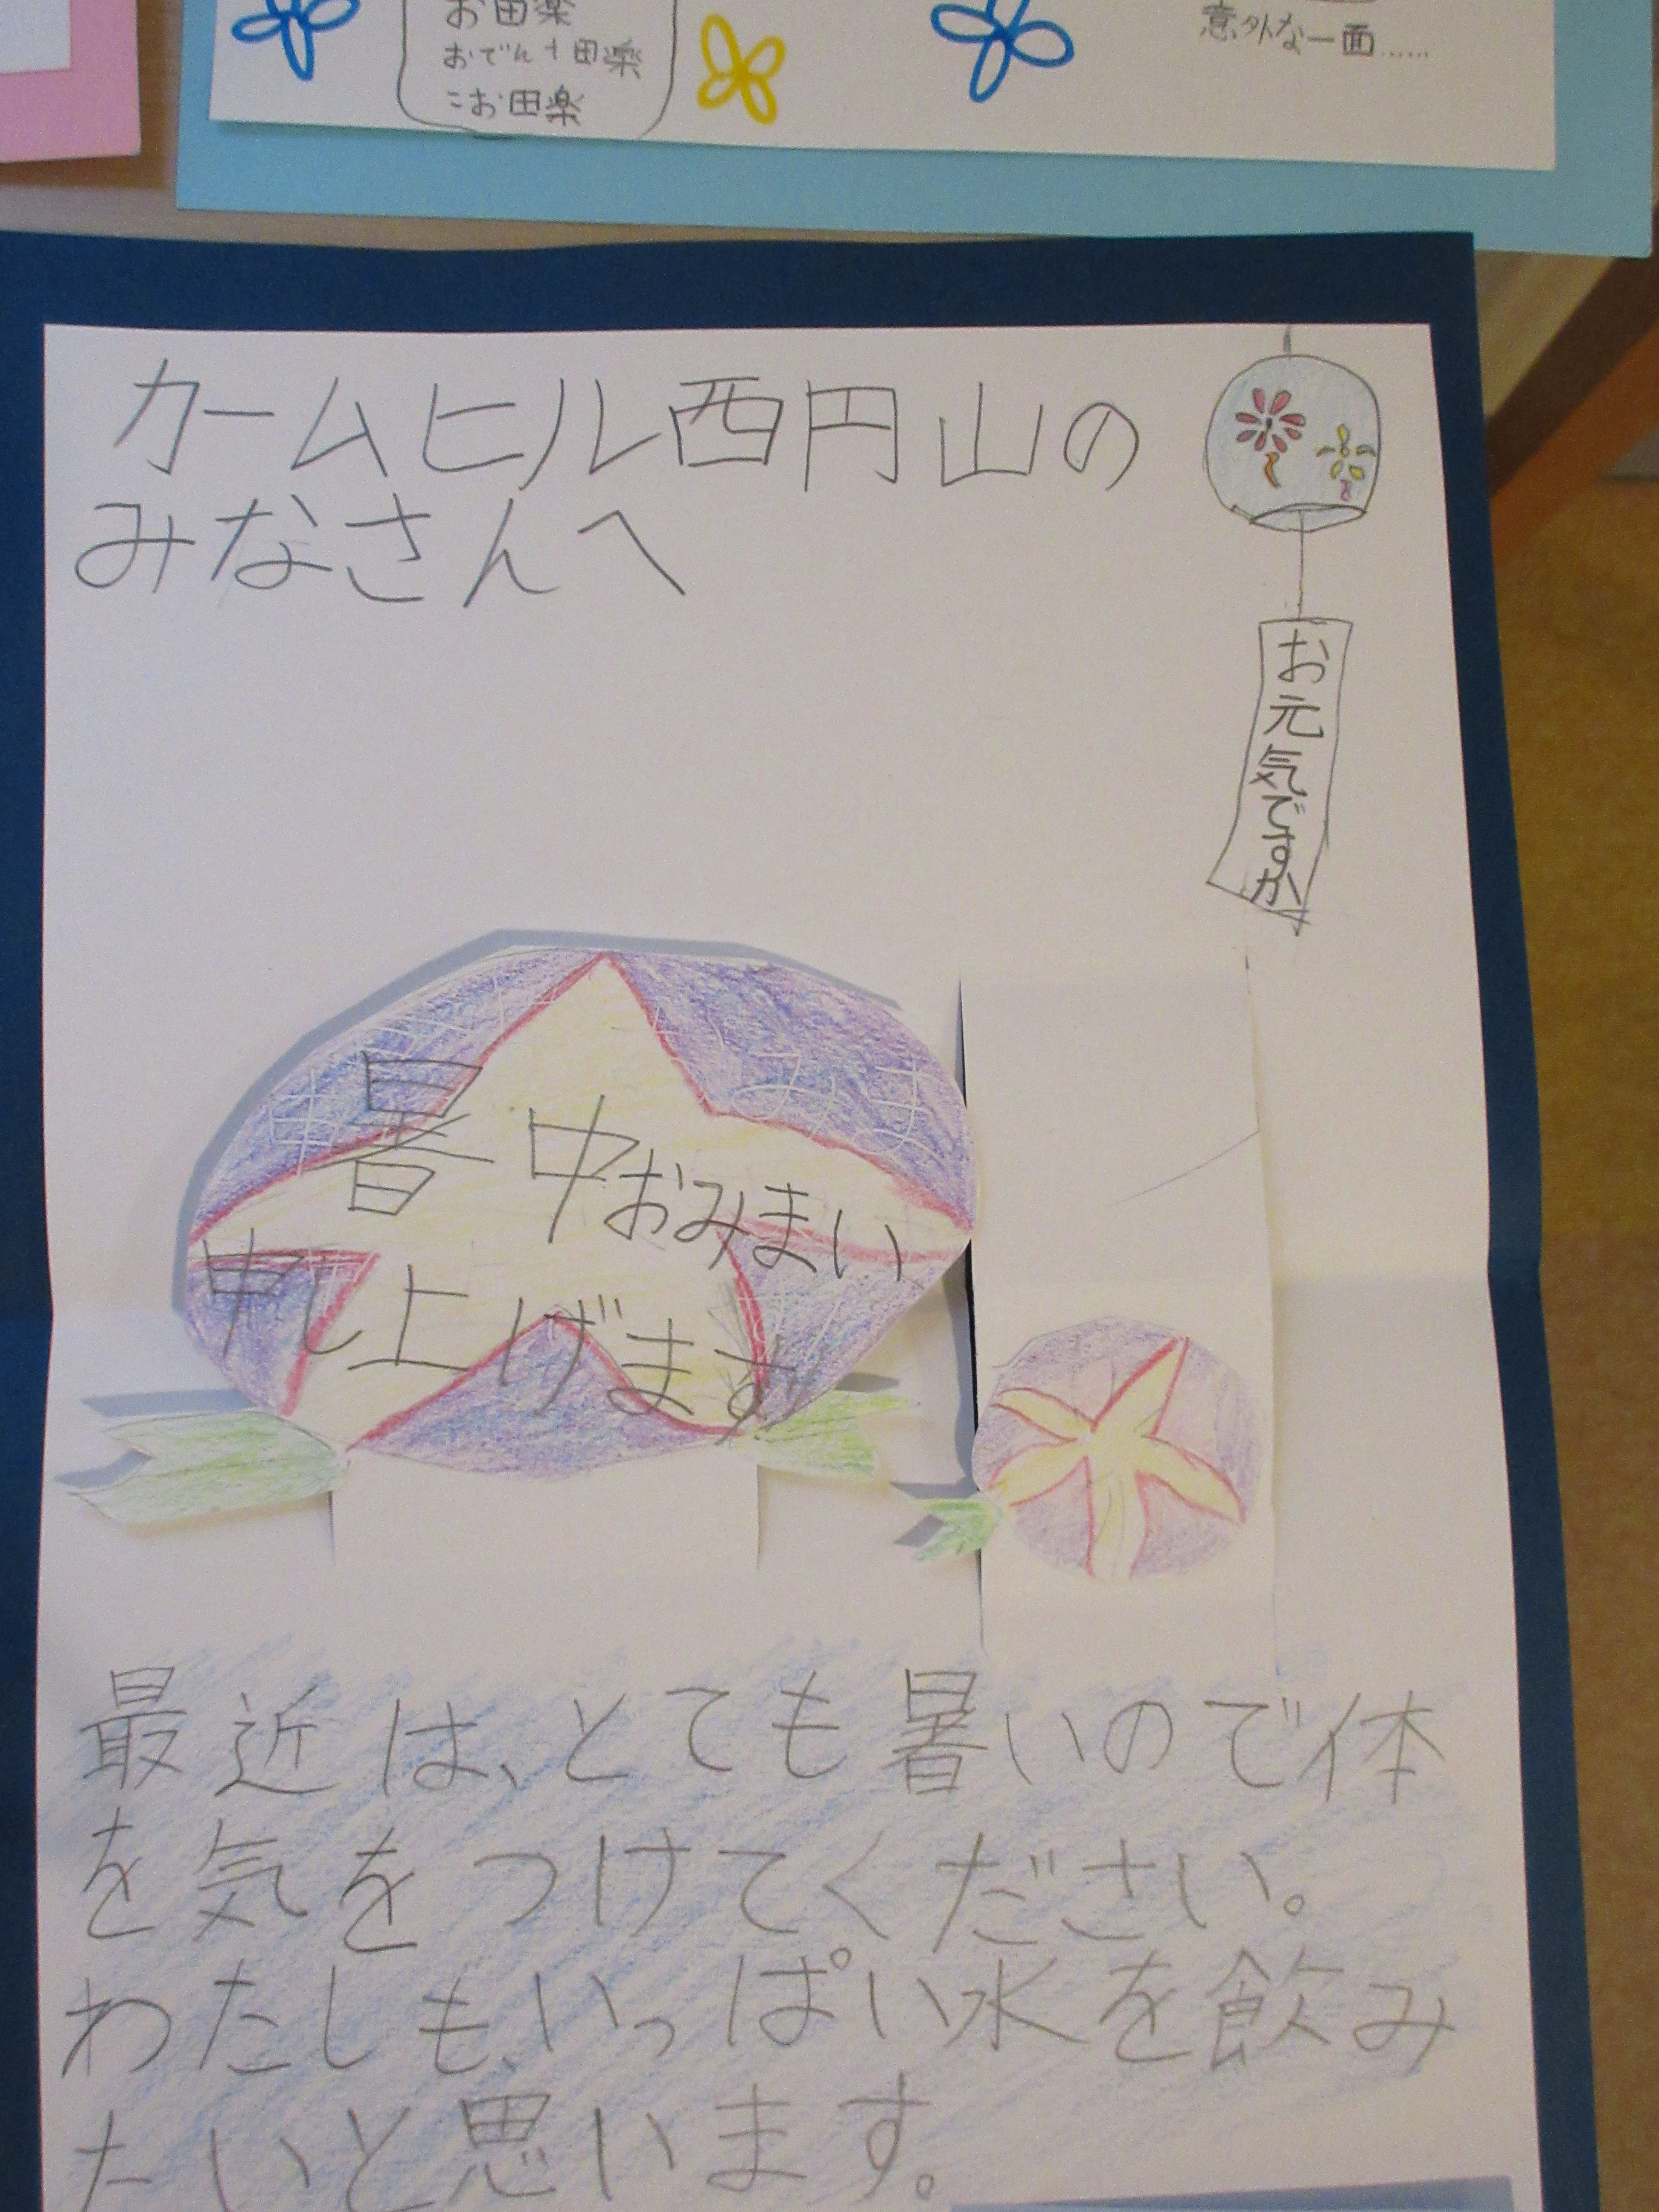 お田楽
おでん十田楽
こお田楽
意外な一面……
カームヒル西円山の
みなさんへ
お元気ですか
暑中おみまい
申し上げます
最近は、とても暑いので体
を気をつけてください。
わたしも、いっぱい水を飲み
たいと思います。